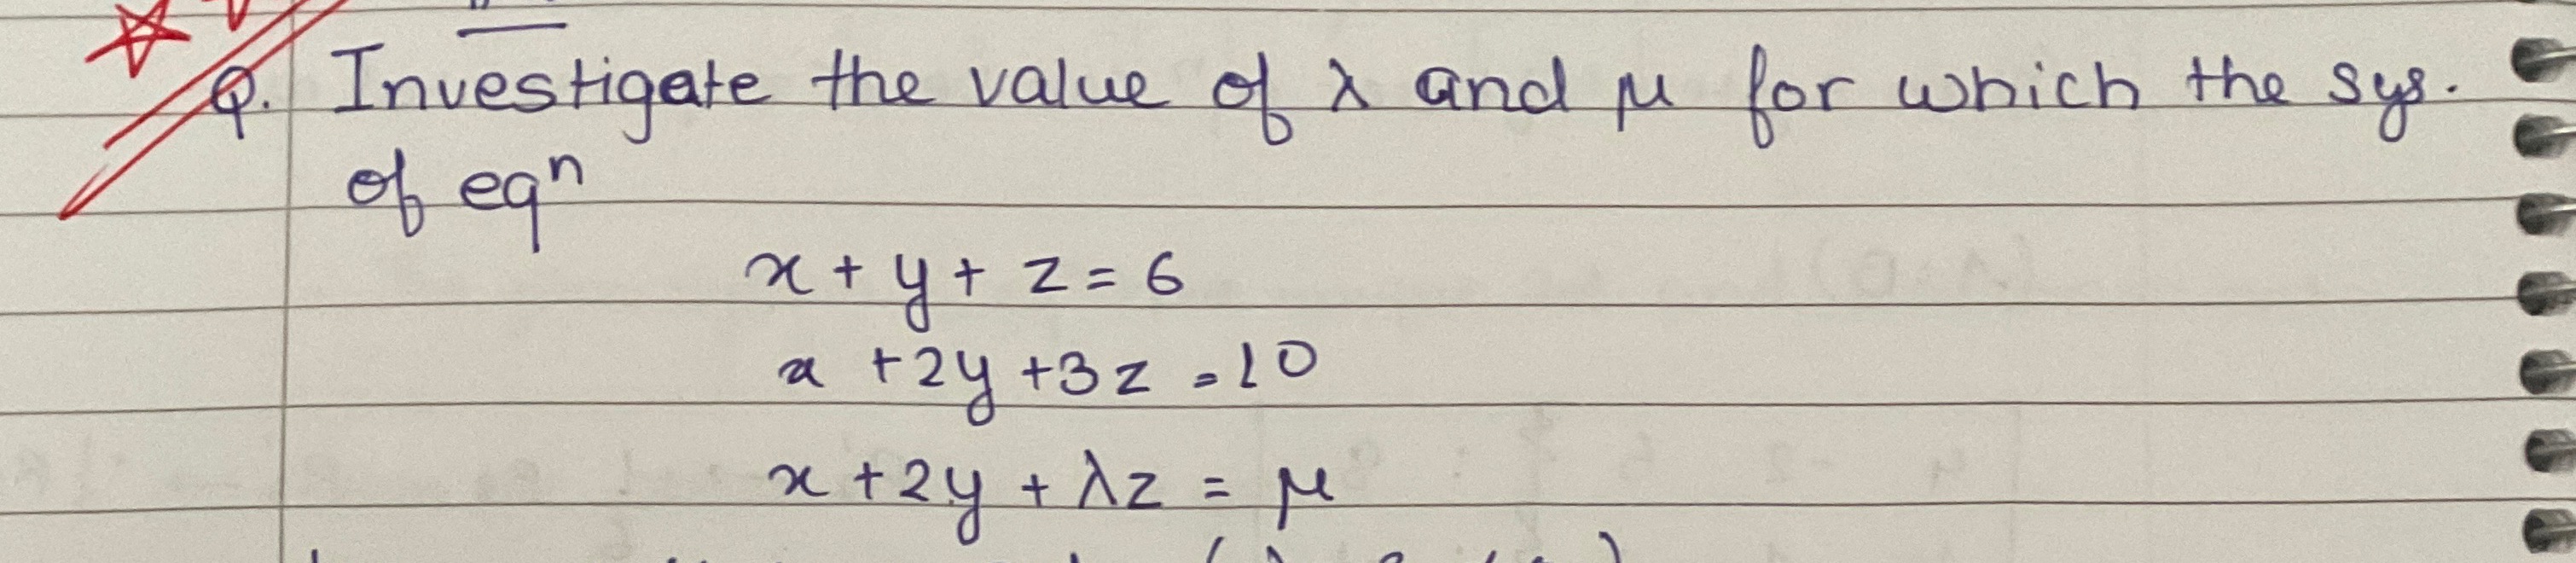 Q. Investigate the value of λ and μ for which the sys.
of eqⁿ
x + y + z = 6
x + 2y + 3z = 10
x + 2y + λz = μ